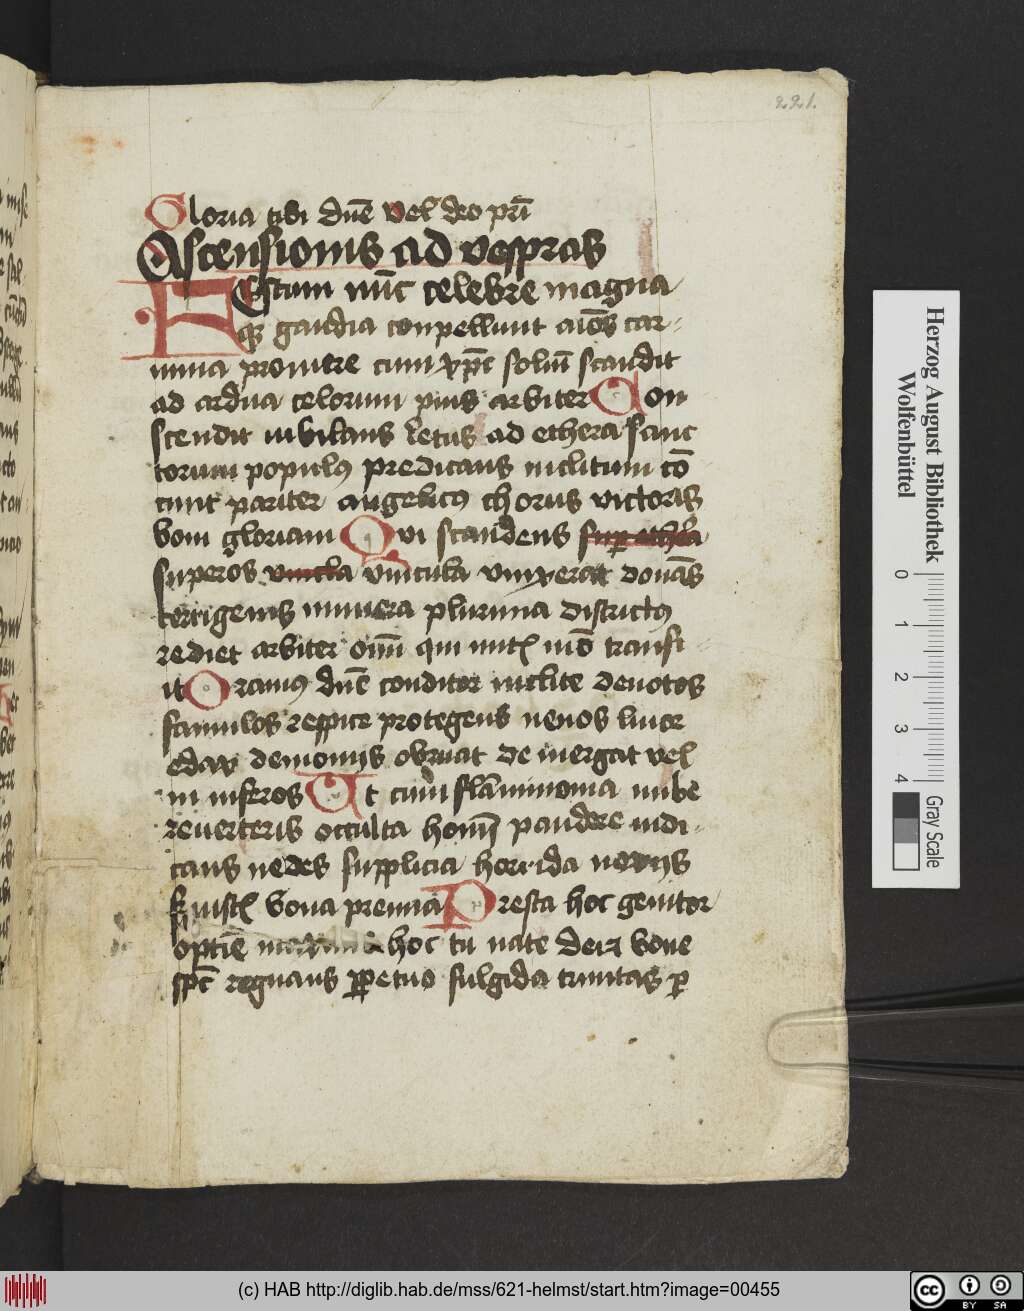 221.
Gloria tibi dn̄e vel deo pr̄i
Ascensionis ad vesperas
FEstum nūc celebre magna
qꝫ gaudia conpellunt aīos car-
mina promere cum xp̄c soliū scandit
ad ardua celorum pius arbiter Con
scendit iubilans letus ad ethera sanc
torum populꝰ predicans inclitum cō
cinit pariter angelicꝰ chorus victoris
boni gloriam Qui scandens sup ethera
superos vincla vincula vinxerat donās
terrigenis munera plurima districtꝰ
rediet arbiter oīm qui mitꝭ mō transi
it Oramꝰ dn̄e conditor inclite deuotos
famulos respice protegens ne nos liuor
edax demoniis obruat demergat vel
in inferos Vt cum flāminoma nube
reuerteris occulta homīꝫ pandere iudi-
cans ne des supplicia horrida noxiis
sꝫ iustꝭ bona premia Presta hoc genitor
optīe hoc tu nate dei ⁊ bone
sp̄c regnans ꝑpetuo fulgida trinitas ꝑ
Herzog August Bibliothek
Wolfenbüttel
0
1
2
3
4
Gray Scale
(c) HAB http://diglib.hab.de/mss/621-helmst/start.htm?image=00455
cc
BY SA